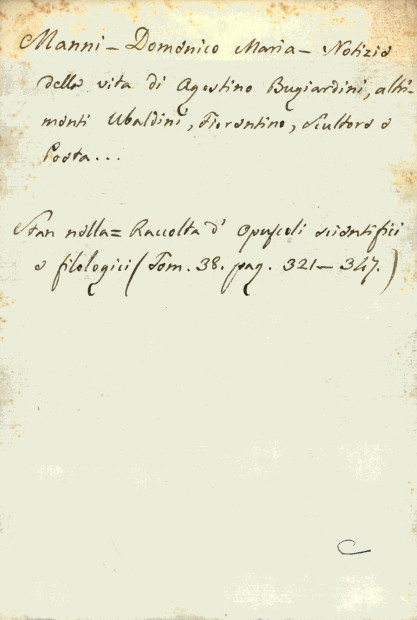 Manni - Domenico Maria - Notizie
della vita di Agostino Bugiardini, altri-
menti Ubaldini, Fiorentino, Scultore e
Poeta...
Stan nella = Raccolta d' Opuscoli scientifici
e filologici (Tom. 38. pag. 321 - 347.)
C